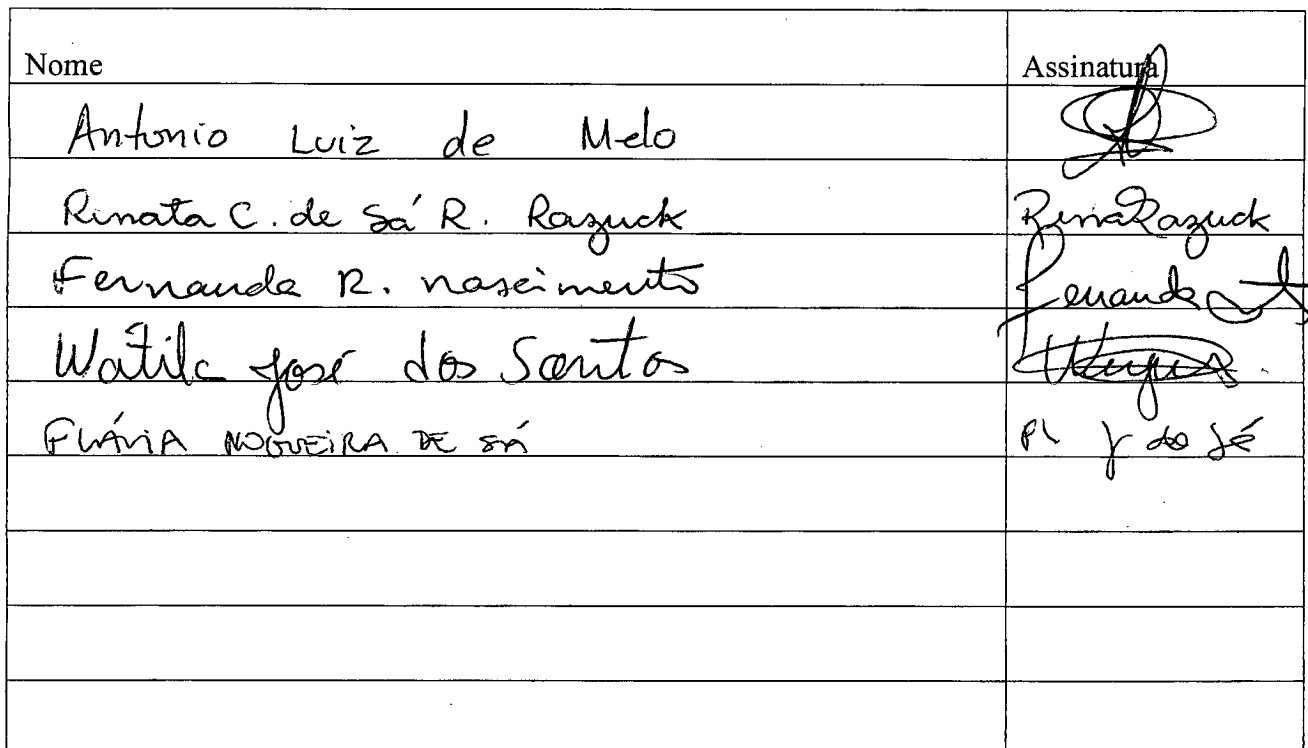 Nome Assinatura
Antonio Luiz de Melo
Renata C. de Sá R. Razuck RenaRazuck
Fernanda R. nascimento Fernanda
José dos Santos
FLÁVIA NOGUEIRA DE SÁ